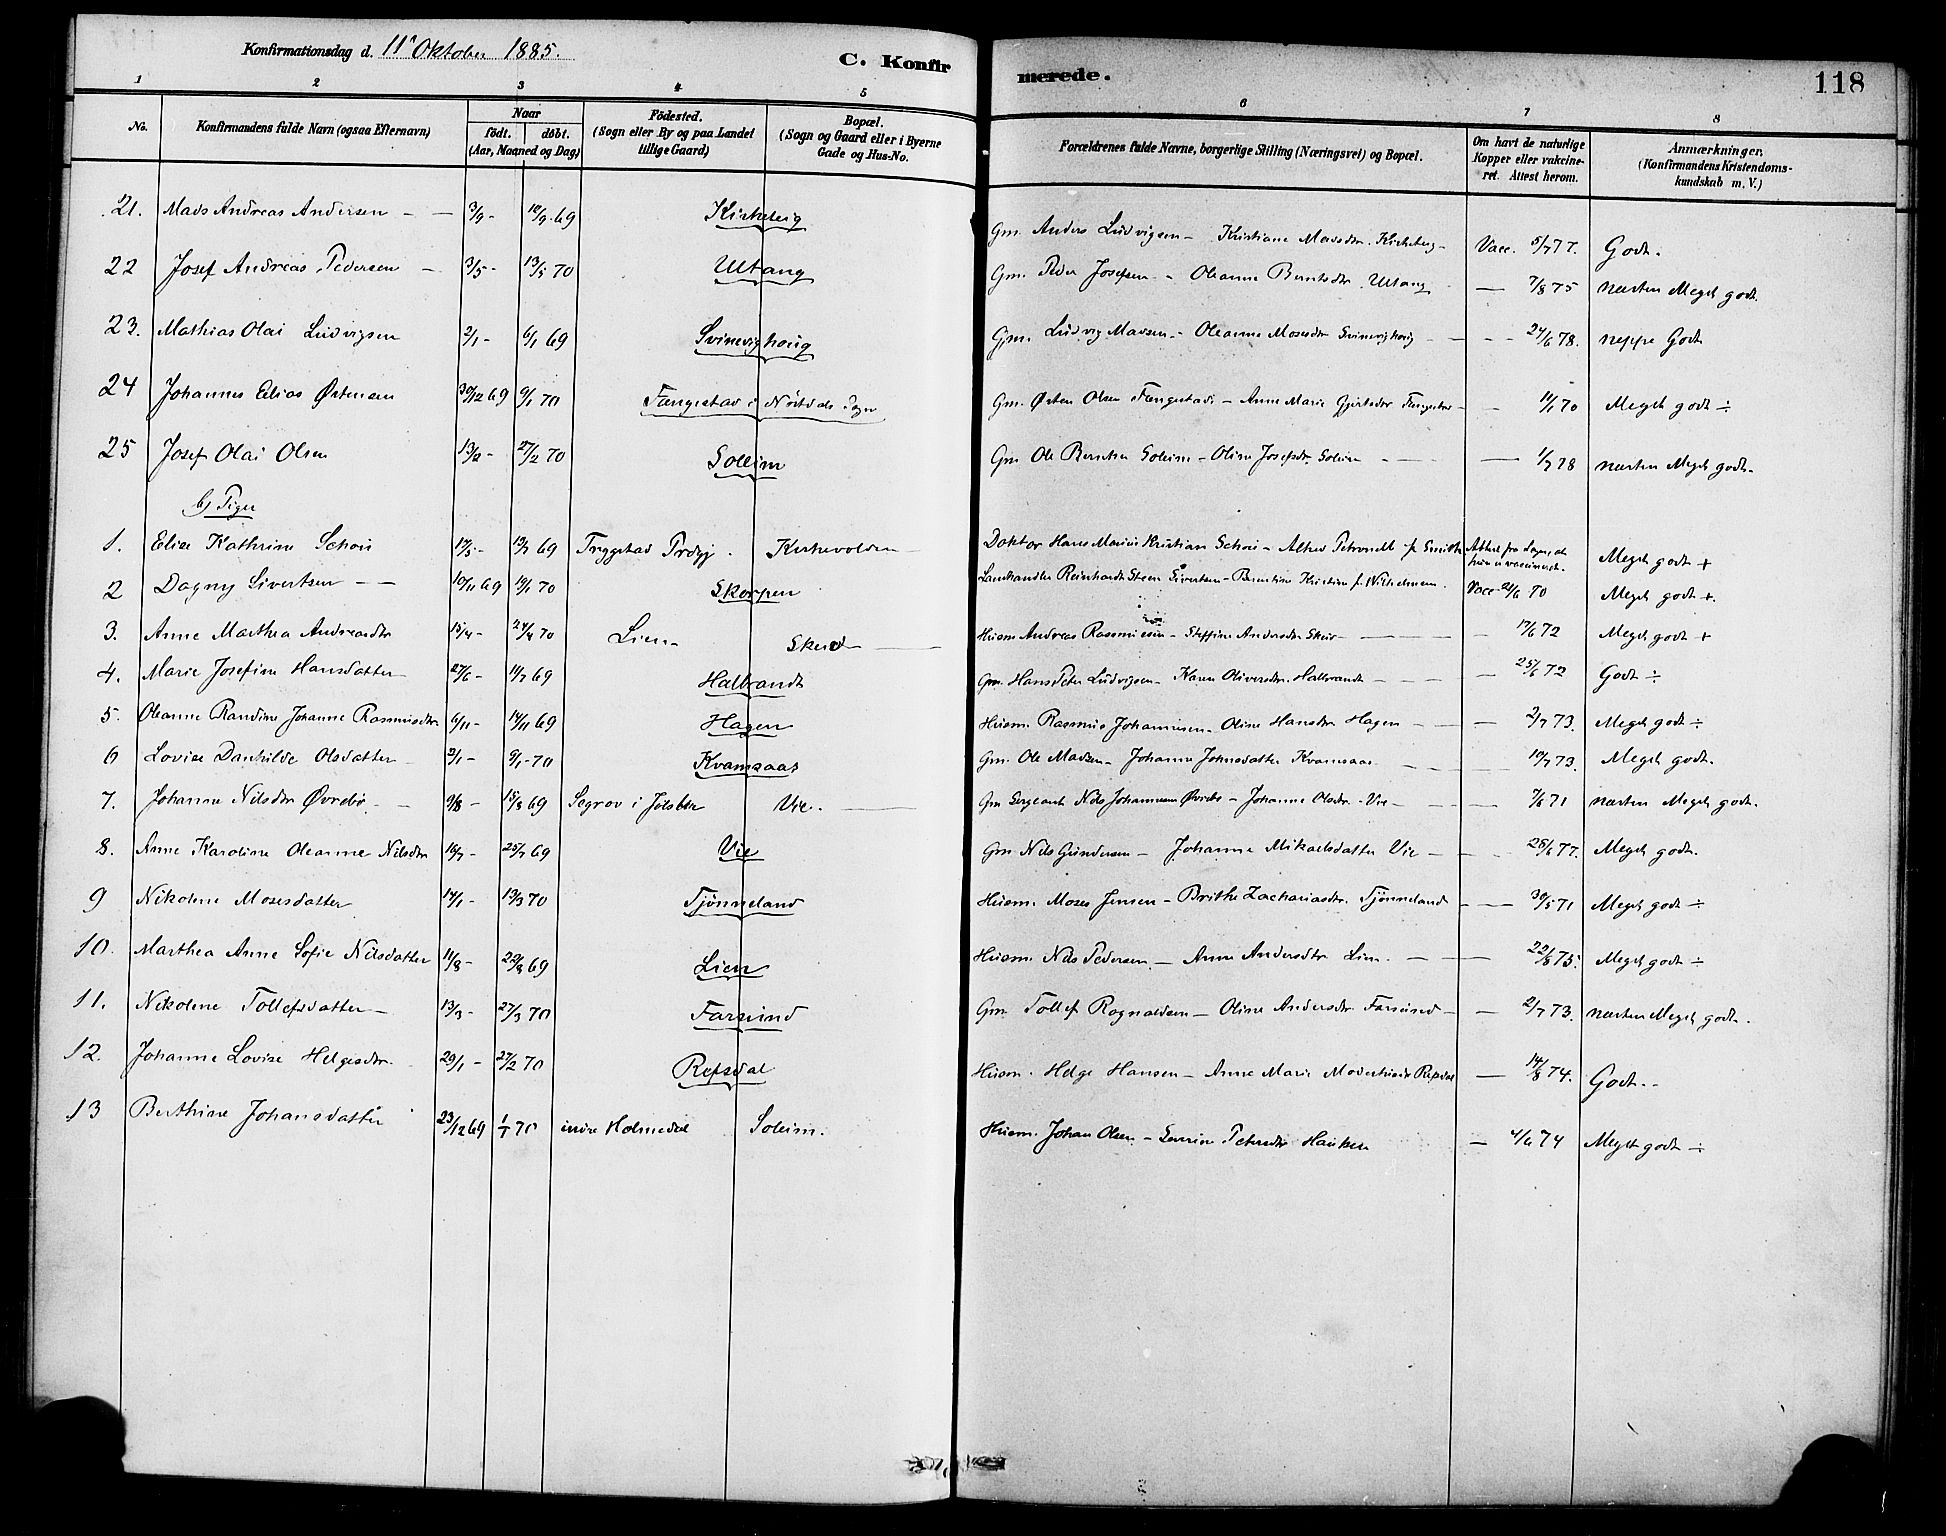 Konfirmationsdag d. 11' Oktober 1885. C. Konfirmerede. 118
1 2 3 4 5 6 7 8
No. Konfirmandens fulde Navn (ogsaa Efternavn) Naar født. døbt. (Aar, Maaned og Dag) Fødested. (Sogn eller By og paa Landet tillige Gaard) Bopæl. (Sogn og Gaard eller i Byerne Gade og Hus-No. Forældrenes fulde Navne, borgerlige Stilling (Næringsvei) og Bopæl. Om havt de naturlige Kopper eller vakcineret. Attest herom. Anmærkninger. (Konfirmandens Kristendomskundskab m. V.)
21. Mads Andreas Andersen 3/9 - 12/9 69 Kirkeberg Gm. Anders Ludvigsen - Kristiane Madsdtr. Kirkeberg - Vacc. 5/7 77. Godt.
22 Josef Andreas Pedersen - 3/5 - 13/5 70 Ullang Gm. Peder Josefsen - Oleanne Berntsdtr. Ullang - 7/8 75 næsten Meget godt.
23. Mathias Olai Ludvigsen 2/1 - 6/1 69 Svinevighoug Gm. Ludvig Madsen - Oleanne Mosesdtr Svinevighoug - 24/6 78. neppe Godt
24 Johannes Elias Østensen 30/12 69 9/1 70 Fængestad i Nøstdals Sogn Gm. Østen Olsen Fængestad - Anne Marie Gjertsdtr Fængestad - 14/1 70 Meget godt ÷
25 Josef Olai Olsen 13/2 - 27/2 70 Soleim Gm Ole Berntsen Soleim - Oline Josefsdr. Soleim - 1/7 78 næsten Meget godt.
b) Piger
1. Elise Kathrine Schou 17/5 - 13/7 69 Tryggstad Kirkevolden Doktor Hans Marius Kristian Schou - Petronelle f. Smith Attest fra Meget godt +
2 Dagny Sivertsen - - 10/11 69 19/1 70 Skorpen Landhandler Reinhardt Steen Sivertsen - Berntine Kristine f. Wilhelmsen. Vacc 21/6 70 Meget godt +.
3. Anne Marthea Andreasdtr 15/4 - 24/4 70 Lien - Skei Husm Andreas Rasmussen - Steffine Andersdtr Skei - 17/6 72 Meget godt +
4. Marie Josefine Hansdatter 27/6 - 11/7 69 Halbrandt Gm. Hans Peter Ludvigsen - Karen Oliversdtr. Halbrandt - 25/6 72 Godt ÷
5. Oleanne Randine Johanne Rasmusdtr 6/11 - 14/11 69 Hagen Husm. Rasmus Johannesen - Oline Hansdtr Hagen - 2/7 73. Meget godt ÷
6 Lovise Danhilde Olsdatter 2/1 - 9/1 - 70 Kvamsaas Gm. Ole Madsen - Johanne Johnsdatter Kvamsaas 10/7 73. Meget godt.
7. Johanne Nilsdtr Øvrebø - 9/8 - 15/8 69 Segrov i Jølster Vie. Gm Sergeant Nils Johannesen Øvrebø - Johanne Olsdtr. Vie - 7/6 71 næsten Meget godt.
8. Anne Karoline Oleanne Nilsdtr 16/7 - 25/7 69 Vie Gm Nils Gundersen - Johanne Mikaelsdatter Vie - 28/6 77. Meget godt.
9 Nikoline Mosesdatter 14/1 - 13/3 70 Tjønneland Husm. Moses Jensen - Brithe Zachariasdtr. Tjønneland - 30/5 71 Meget godt ÷
10. Marthea Anne Sofie Nilsdatter 11/8 - 22/8 69 Lien Husm. Nils Pedersen - Anne Andersdtr Lien. - 22/8 75. Meget godt ÷
11. Nikoline Tollefsdatter - 13/3 - 27/3 70 Farsund Gm. Tollef Rognaldsen - Oline Andersdtr Farsund - 2/7 73. næsten Meget godt.
12. Johanne Lovise Helgesdtr. 29/1 - 27/2 70 Refsdal Husm. Helge Hansen - Anne Marie Refsdal - 14/8 74. Godt. -
13 Berthine Johansdatter 23/12 69 1/1 70 indre Holmedal Soleim. Husm. Johan Olsen - Severine Petersdtr Hauken - 4/6 74 Meget godt ÷